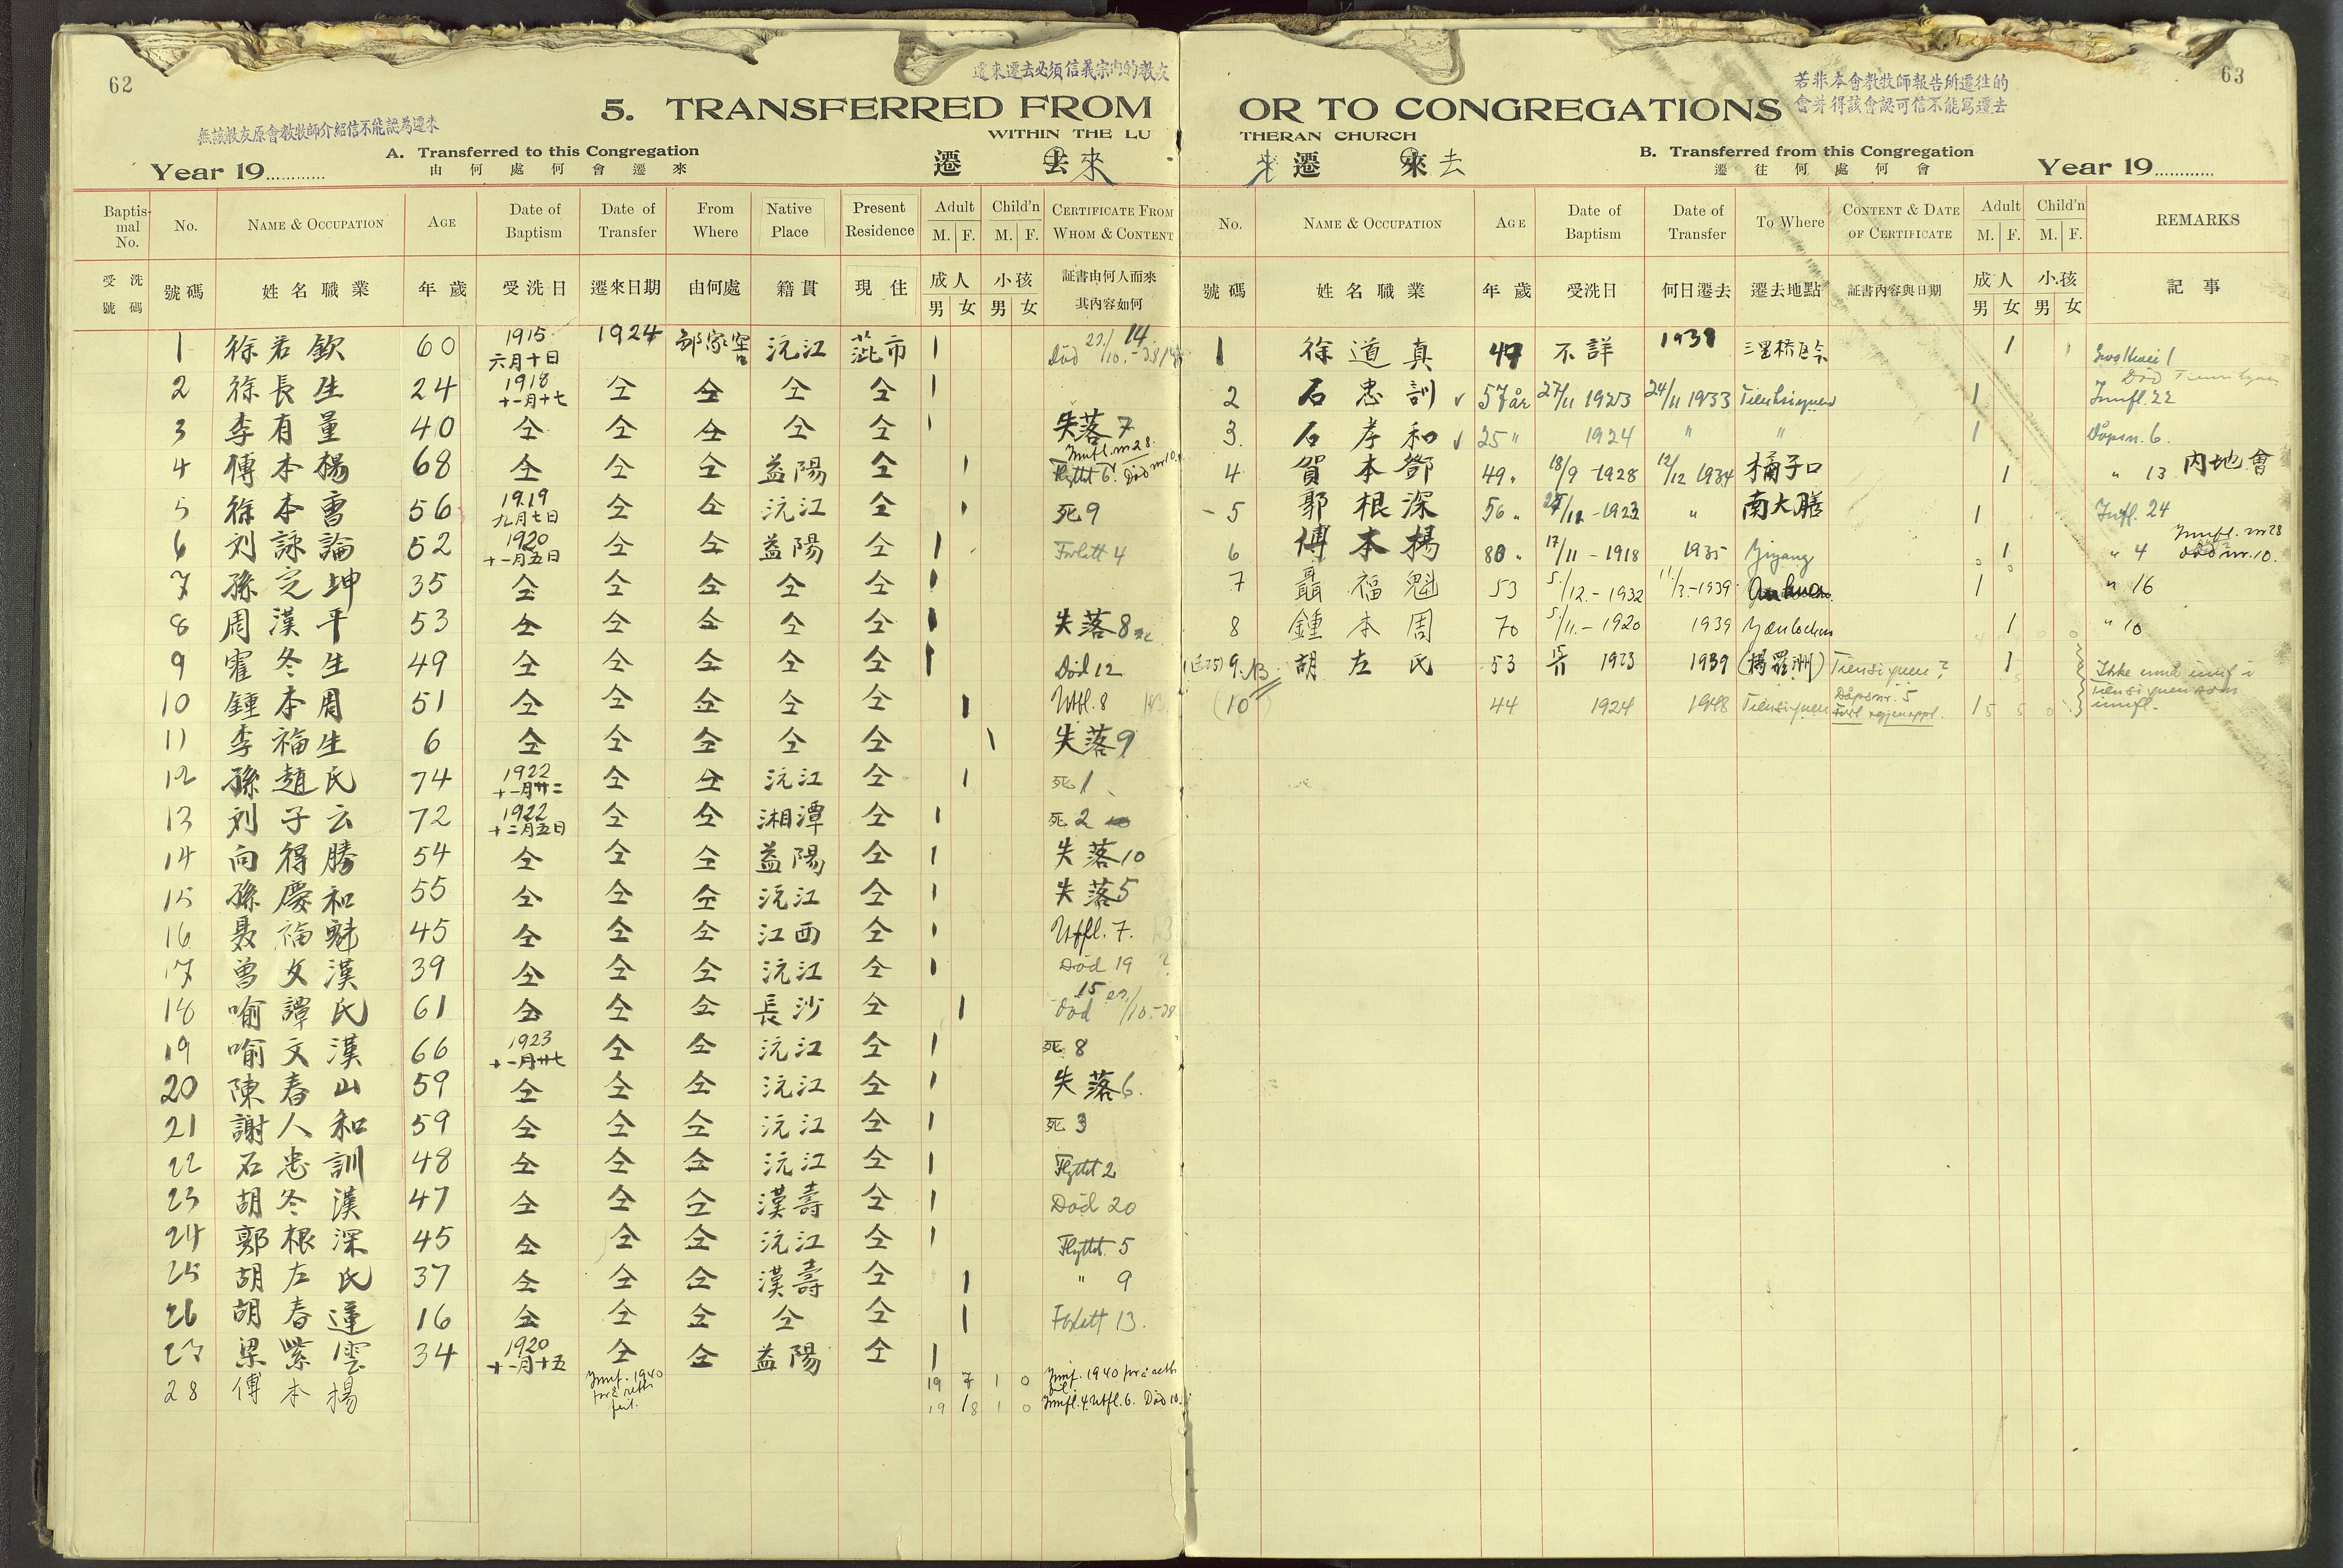 62
遷來遷去必須信義宗內的教友
5. TRANSFERRED FROM
WITHIN THE LU
無該教友原會教牧師介紹信不能認為遷來
A. Transferred to this Congregation
由何處何會遷來
Year 19............
遷 去 來
Baptismal No. No. NAME & OCCUPATION AGE Date of Baptism Date of Transfer From Where Native Place Present Residence Adult M. F. Child'n M. F. CERTIFICATE FROM WHOM & CONTENT
受洗號碼 號碼 姓名職業 年歲 受洗日 遷來日期 由何處 籍貫 現住 成人 男 女 小孩 男 女 証書由何人而來其內容如何
1 徐若欽 60 1915 六月十日 1924 沅江 市 1 14 Död
2 徐長生 24 1918 十一月十七 仝 仝 仝 仝 1
3 李有量 40 仝 仝 仝 仝 仝 1 失落7
4 傅本楊 68 仝 仝 仝 益陽 仝 1 Innfl. nr 28. Flyttet 6. Död nr 10.
5 徐本 56 1919 九月七日 仝 仝 沅江 仝 1 死9
6 刘詠論 52 1920 十一月五日 仝 仝 益陽 仝 1 Forlatt 4
7 孫定坤 35 仝 仝 仝 仝 仝 1
8 周漢平 53 仝 仝 仝 仝 仝 1 失落8
9 冬生 49 仝 仝 仝 仝 仝 1 Död 12
10 鍾本周 51 仝 仝 仝 仝 仝 1 Utfl. 8
11 李福生 6 仝 仝 仝 仝 仝 1 失落9
12 孫趙氏 74 1922 十一月廿二 仝 仝 沅江 仝 1 死1
13 刘子云 72 1922 十二月五日 仝 仝 湘潭 仝 1 死2
14 向得勝 54 仝 仝 仝 益陽 仝 1 失落10
15 孫慶和 55 仝 仝 仝 沅江 仝 1 失落5
16 聂福魁 45 仝 仝 仝 江西 仝 1 Utfl. 7.
17 曾文漢 39 仝 仝 仝 沅江 仝 1 Död 19
18 喻譚氏 61 仝 仝 仝 長沙 仝 1 15 Död
19 喻文漢 66 1923 十一月廿七 仝 仝 沅江 仝 1 死8
20 陳春山 59 仝 仝 仝 沅江 仝 1 失落6.
21 謝人和 59 仝 仝 仝 沅江 仝 1 死3
22 石忠訓 48 仝 仝 仝 沅江 仝 1 Flyttet 2
23 胡冬漢 47 仝 仝 仝 漢壽 仝 1 Död 20
24 郭根深 45 仝 仝 仝 沅江 仝 1 Flyttet. 5
25 胡左氏 37 仝 仝 仝 漢壽 仝 1 " 9
26 胡春蓮 16 仝 仝 仝 仝 仝 1 Forlatt 13.
27 梁紫雲 34 1920 十一月十五 仝 仝 益陽 仝 1
28 傅本楊 1940 19 7 1 0 1940
19 18 1 0 Innfl. 4. Utfl. 6. Död 10.
63
若非本會教牧師報告所遷往的
會并得該會認可信不能寫遷去
OR TO CONGREGATIONS
THERAN CHURCH
來 遷 來 去
B. Transferred from this Congregation
遷往何處何會
Year 19............
No. NAME & OCCUPATION AGE Date of Baptism Date of Transfer To Where CONTENT & DATE OF CERTIFICATE Adult M. F. Child'n M. F. REMARKS
號碼 姓名職業 年歲 受洗日 何日遷去 遷去地點 証書內容與日期 成人 男 女 小孩 男 女 記事
1 徐道真 不詳 三里橋 1
2 石忠訓 57 år 27/11 1923 24/11 1933 1 Innfl. 22
3. 石孝和 25 " 1924 " " 1 Dåpsn. 6.
4 賀本鄧 49 " 18/9 - 1928 12/12 1934 橘子口 1 " 13 內地會
5 郭根深 56 " - 1923 " 南大膳 1 Innfl. 24
6 傅本楊 80 " 17/11 - 1918 1935 Yiyang 1 " 4 Innfl. nr 28 Död nr. 10.
7 聶福魁 53 5/12. - 1932 11/3. - 1939 1 " 16
8 鍾本周 70 5/11. - 1920 1939 1 " 10
9. 胡左氏 53 15/11 1923 1939 (楊羅洲) Tiensiquen? 1 Ikke innfl i Tiensiquen som innfl.
(10) 44 1924 1948 Tiensiquen Dåpsnr. 5 1